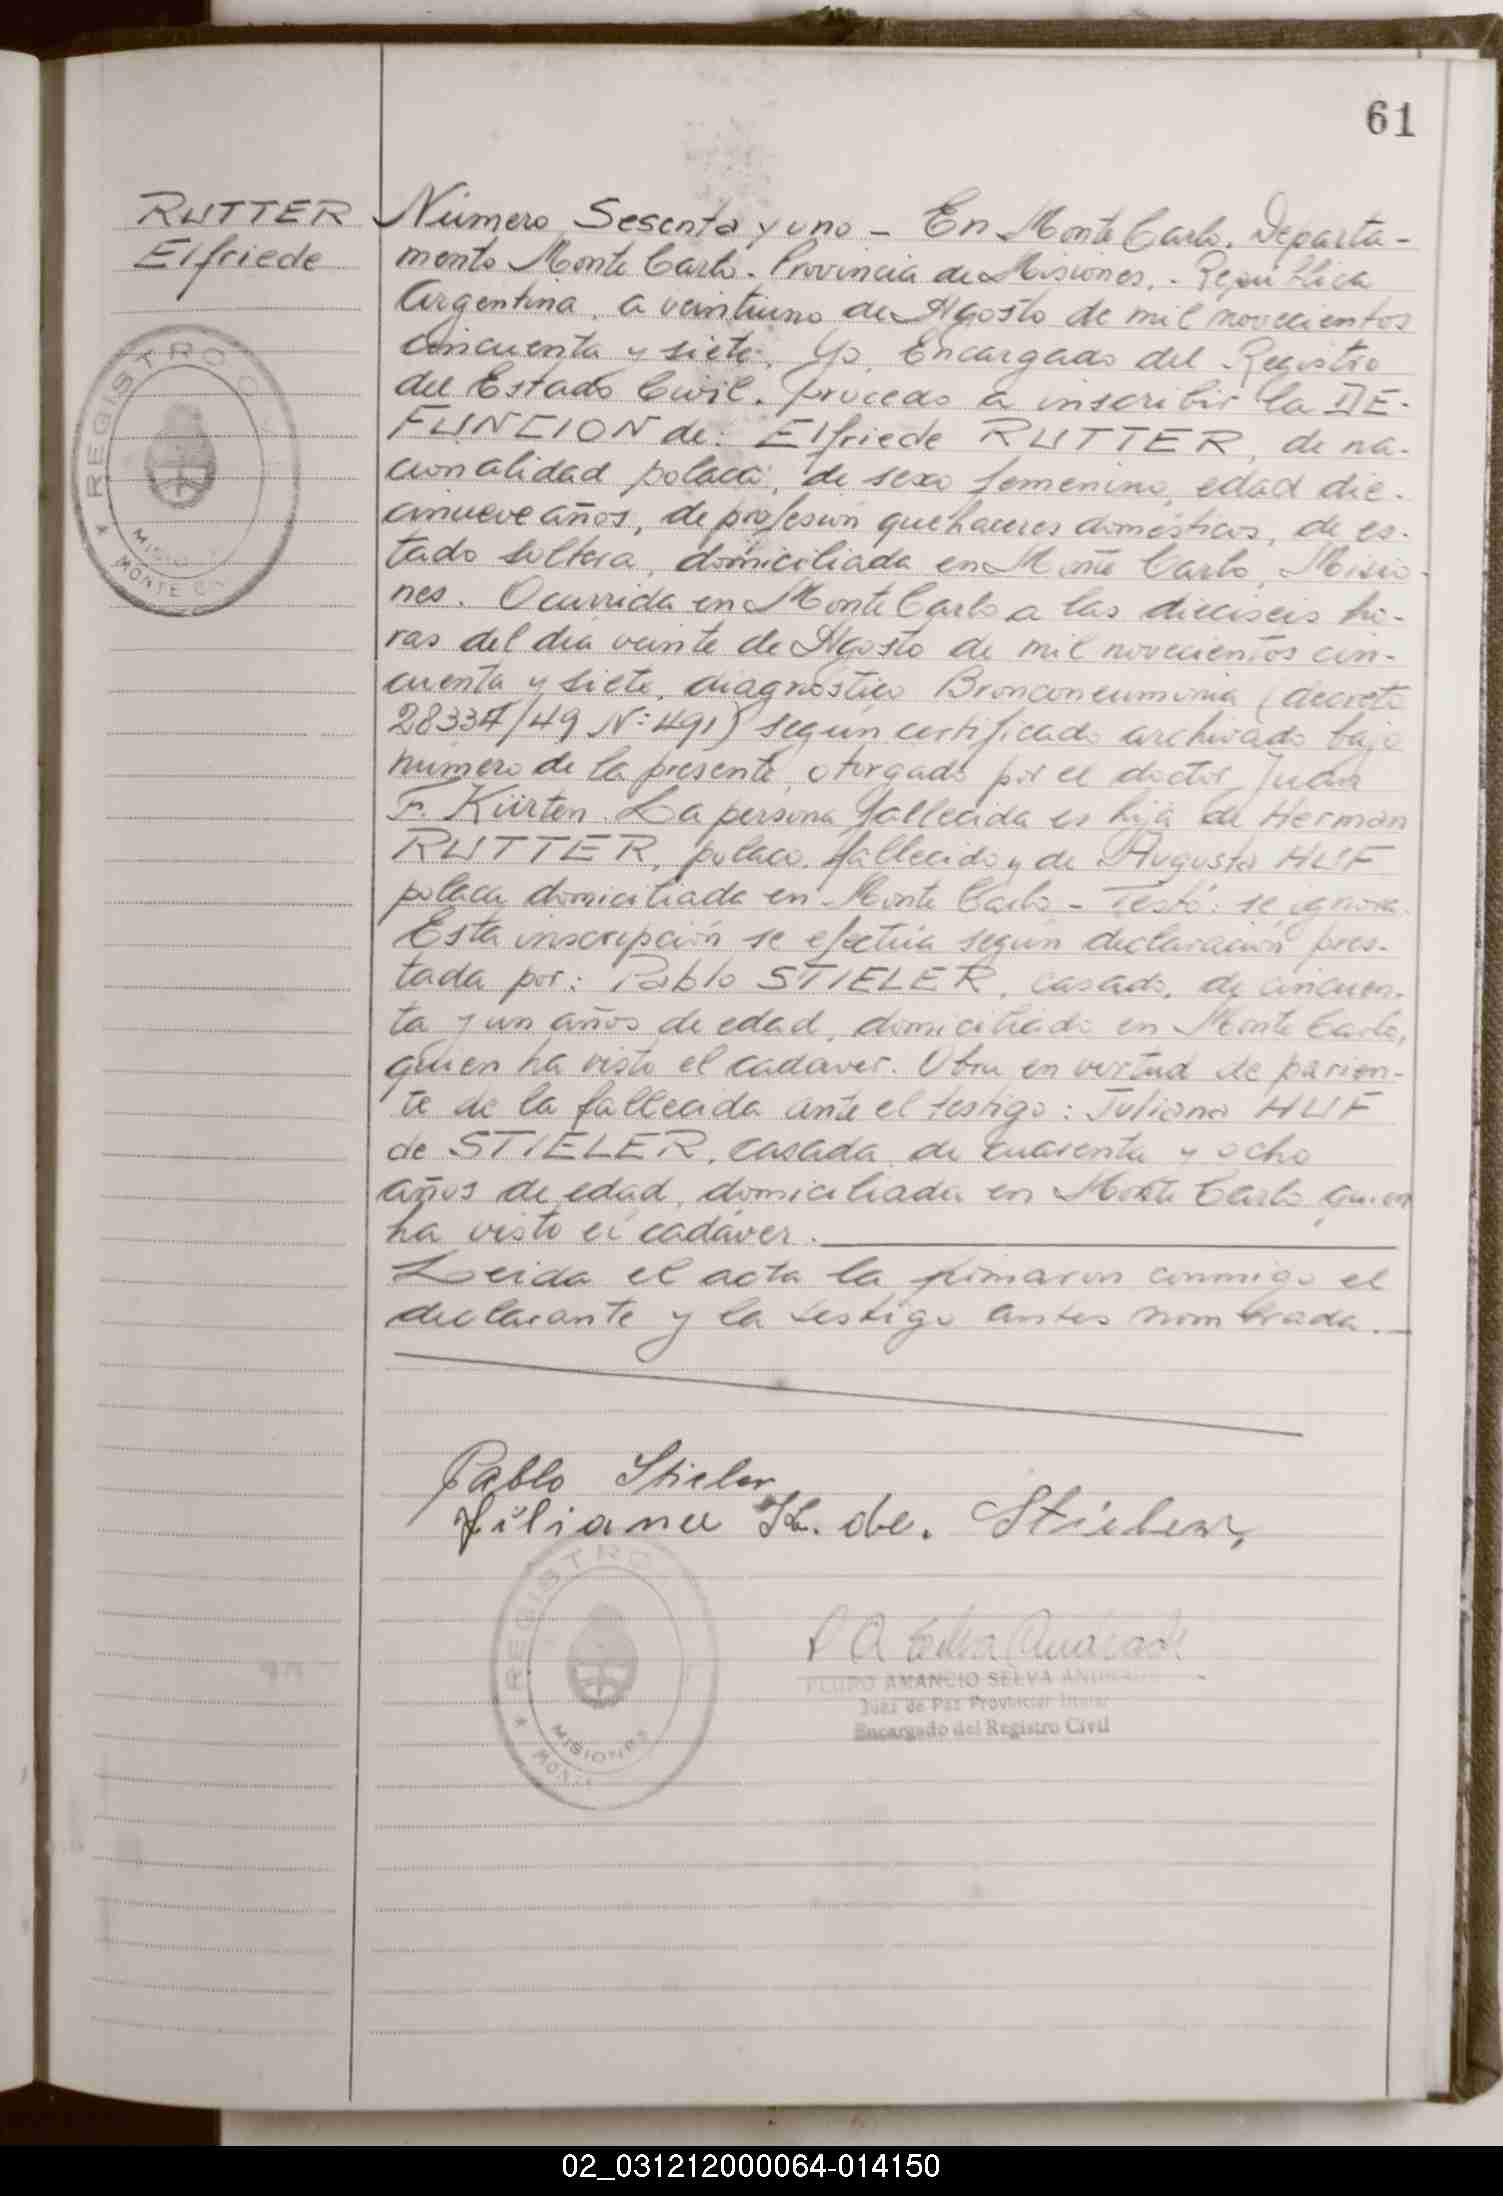 61
RUTTER
Elfriede
Número Sesenta y uno – En Monte Carlo. Departa-
mento Monte Carlo. Provincia de Misiones. - República
Argentina, a veintiuno de Agosto de mil novecientos
cincuenta y siete. Yo, Encargado del Registro
del Estado Civil. procedo a inscribir la DE-
FUNCION de: Elfriede RUTTER, de na-
cionalidad polaca, de sexo femenino, edad die-
cinueve años, de profesión quehaceres domésticos, de es-
tado soltera, domiciliada en Monte Carlo, Misio-
nes. Ocurrida en Monte Carlo a las dieciseis ho-
ras del día veinte de Agosto de mil novecientos cin-
cuenta y siete, diagnóstico Bronconeumonia (decreto
/49 N: 491) según certificado archivado bajo
número de la presente, otorgado por el doctor Juan
F. Kürten. La persona fallecida es hija de Herman
RUTTER, polaco, fallecido y de Augusta HUF
polaca domiciliada en Monte Carlo – Testó: se ignora.
Esta inscripción se efectúa según declaración pres-
tada por: Pablo STIELER, casado, de cincuen-
ta y un años de edad, domiciliado en Monte Carlo,
quien ha visto el cadaver. Obra en virtud de parien-
te de la fallecida ante el testigo: Juliana HUF
de STIELER, casada, de cuarenta y ocho
años de edad, domiciliada en Monte Carlo, quien
ha visto el cadáver.
Leida el acta la firmaron conmigo el
declarante y la testigo antes nombrada.
REGISTRO
MISIO
MONTE C
Pablo Stieler
Juliana H. de. Stieler,
REGISTRO
MISIONES
MONT
P A Selva Andrade
PEDRO AMANCIO SELVA ANDRADE
Juez de Paz Provincial
Encargado del Registro Civil
02_031212000064-014150